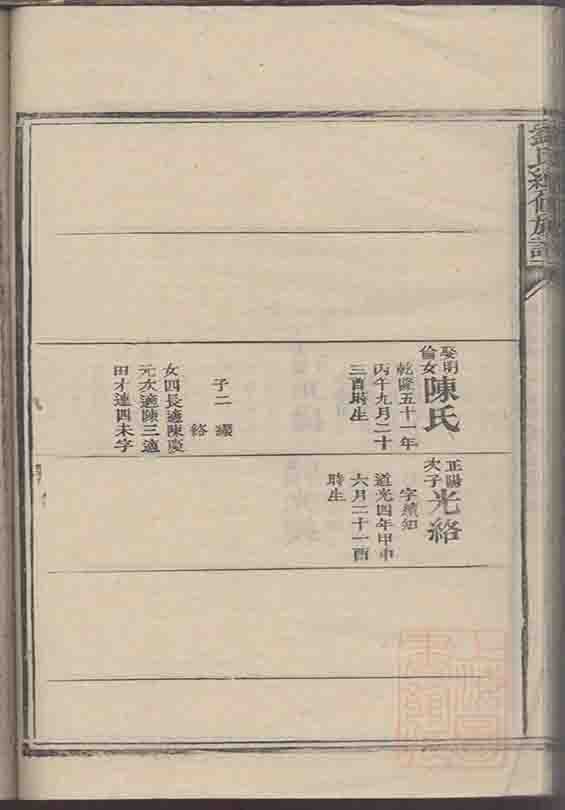 劉氏續修族譜
娶明
倫女
陳氏
乾隆五十一年
丙午九月二十
三酉時生
子二
絡
女四長適陳慶
元次適陳三適
田才連四未字
正陽
次子
光絡
字績知
道光四年甲申
六月二十一酉
時生